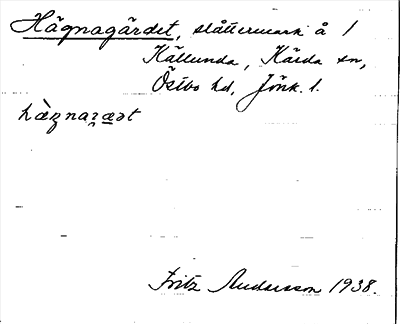 Hägnagärdet, slåttermark å 1
Källunda, Kärda sn,
Östbo hd, Jönk. l.
hὰŋnaꝛæət
Fritz Andersson 1938.